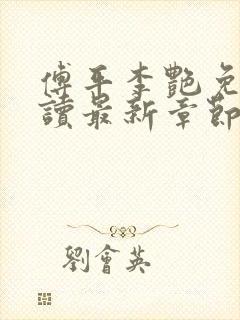 傅平李艷免
讀最新章節
劉會英